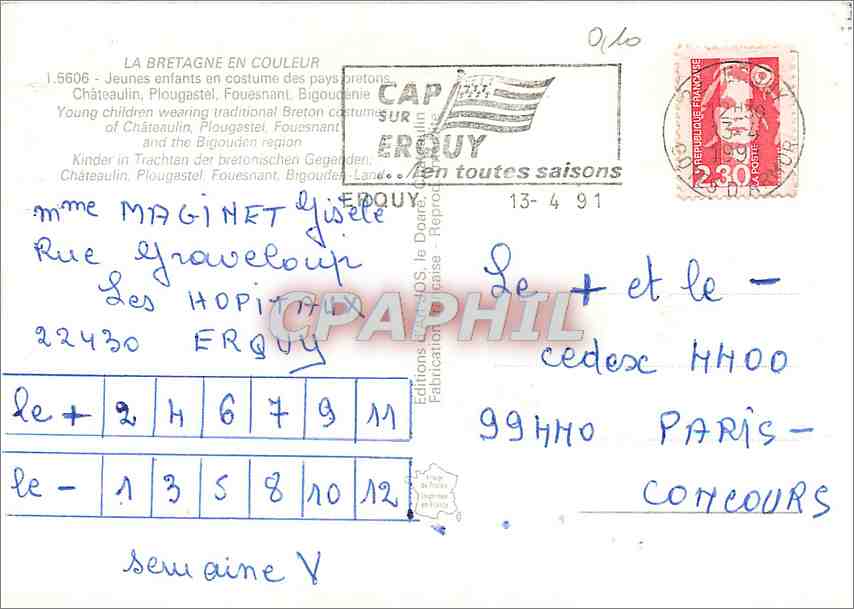 0,10
LA BRETAGNE EN COULEUR
1.5606 - Jeunes enfants en costume des pays bretons,
Châteaulin, Plougastel, Fouesnant, Bigoudenie
Young children wearing traditional Breton costumes
of Châteaulin, Plougastel, Fouesnant
and the Bigouden region
Kinder in Trachten der bretonischen Gegenden:
Châteaulin, Plougastel, Fouesnant, Bigouden-Land
CAP
SUR
ERQUY
... / en toutes saisons
ERQUY 13- 4 91
REPUBLIQUE FRANÇAISE
LA POSTE
2,30
mme MAGINET Gisèle
Rue Graveloup
Les HOPITAUX
22430 ERQUY
le + 2 4 6 7 9 11
le - 1 3 5 8 10 12
semaine V
Editions d'Art JOS, le Doaré, Châteaulin
Fabrication Française - Reproduction
Le + et le -
cedex 4400
99440 PARIS -
CONCOURS
Image
de France
Imprimée
en France
CPAPHIL